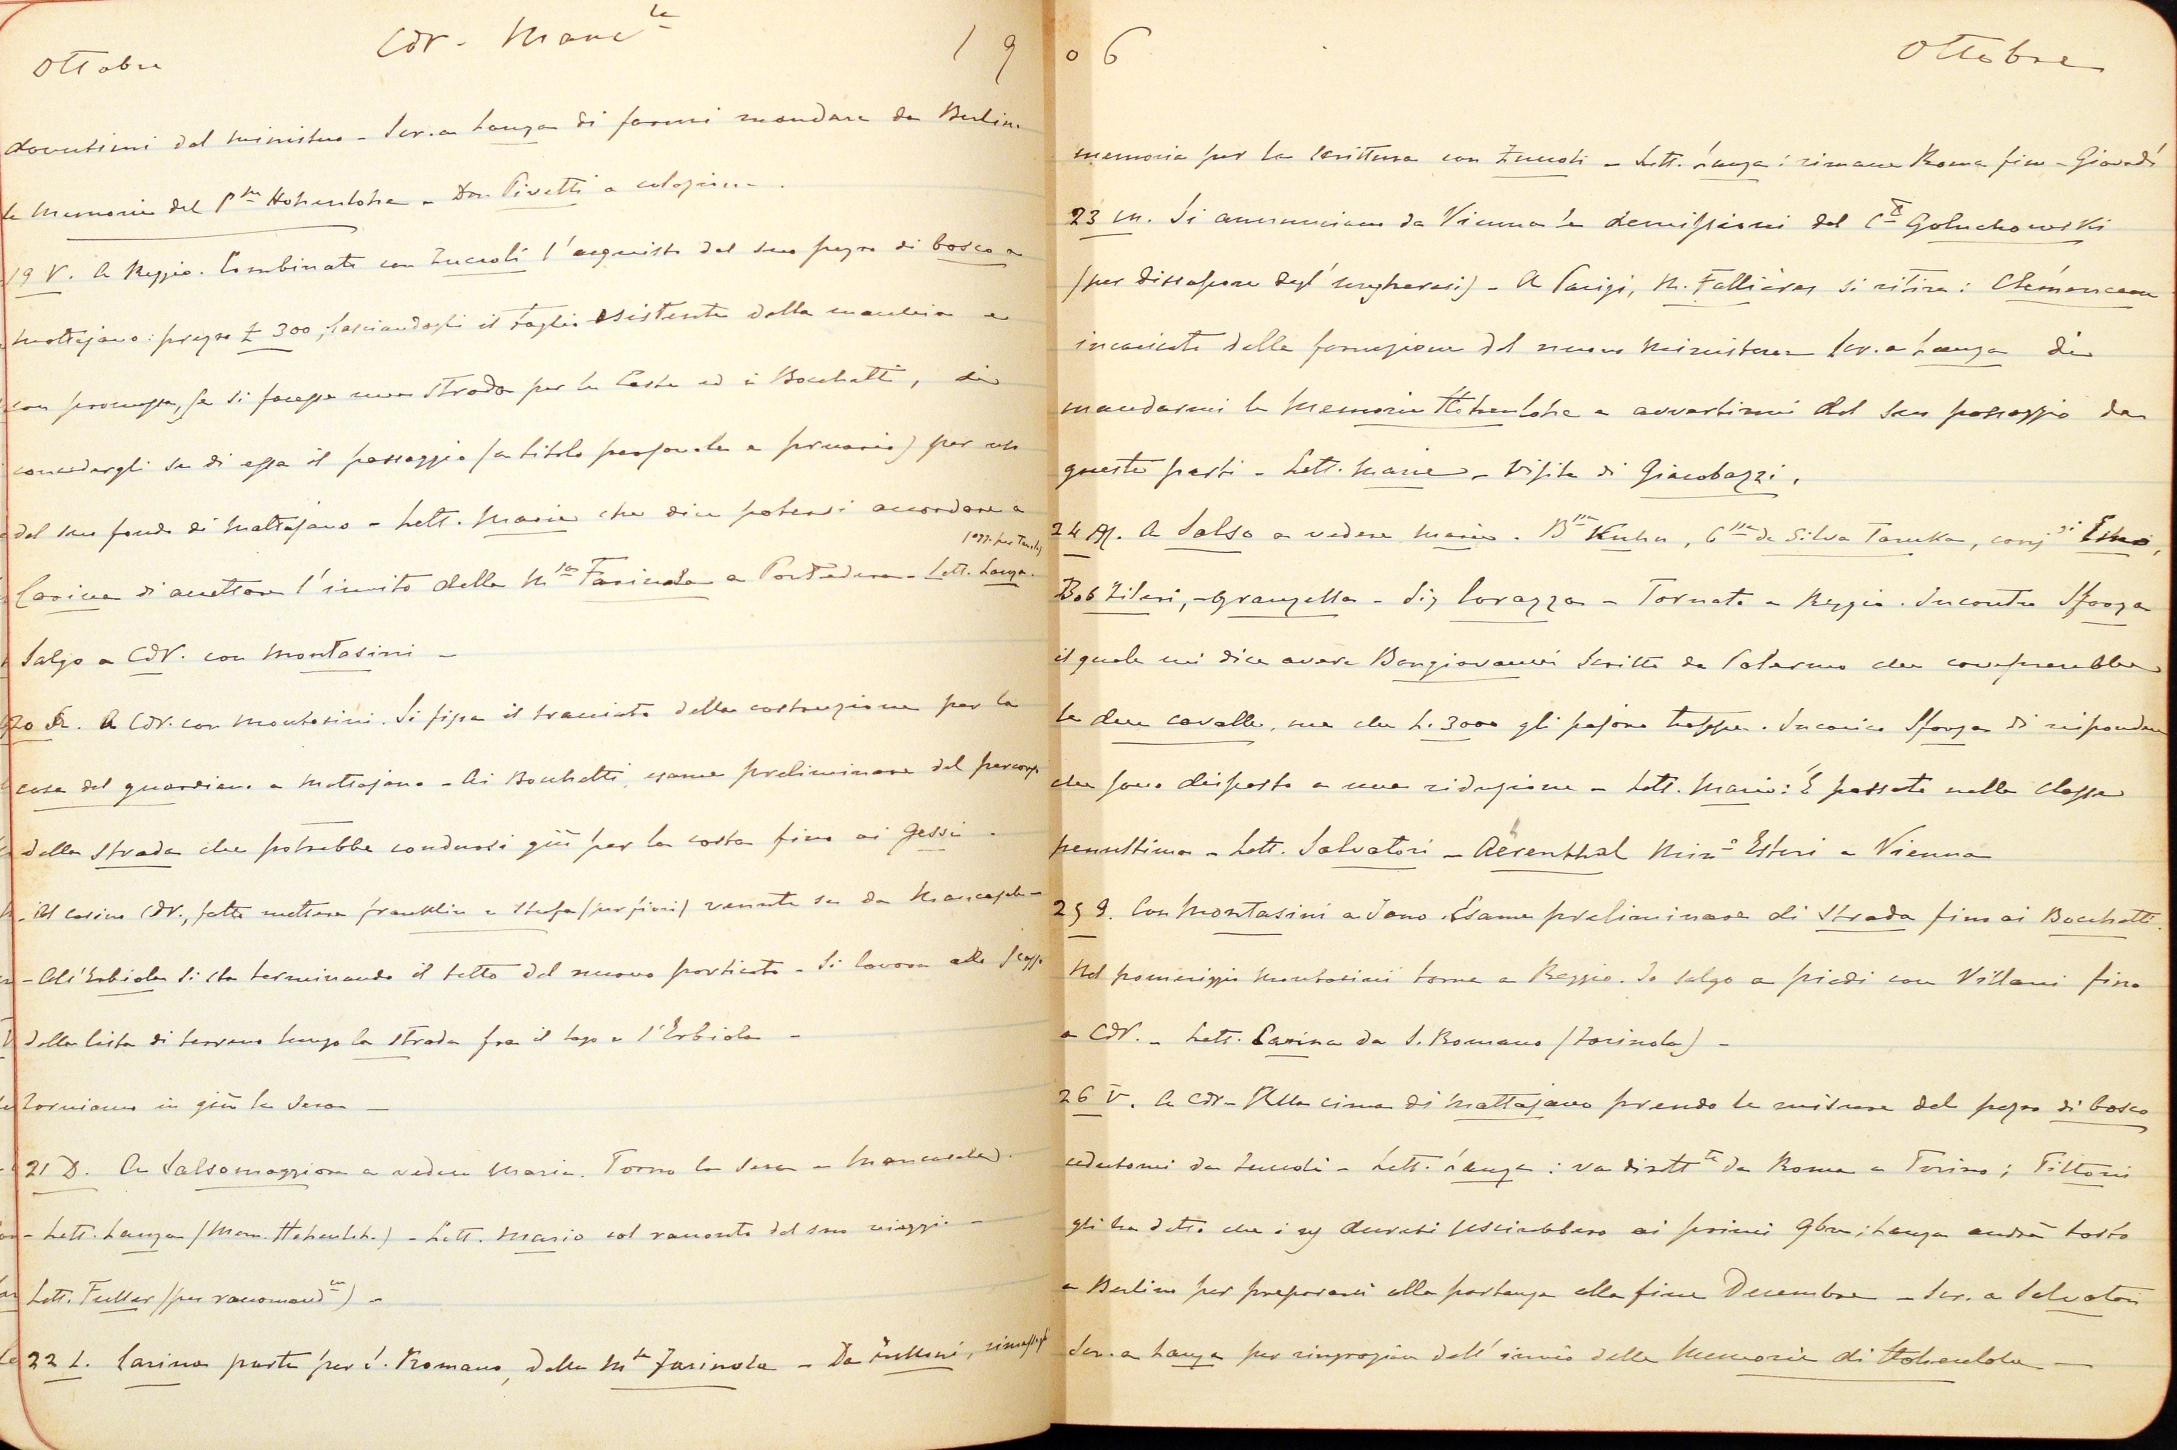 Ottobre CdV - Manc^le 19
dovutimi dal ministro - Scr. a Lanza di farmi mandare da Berlino
le Memorie del P^pe Hohenlohe - Don Pivetti a colazione.
19 V. A Reggio. Combinato con Zuccoli l'acquisto del suo pezzo di bosco a
Mattajano: prezzo £ 300, lasciandogli il taglio esistente della macchia e
con promessa, se si facesse una strada per la Costa ed i Bocchetti, di
concedergli su di essa il passaggio (a titolo personale e precario) per
del suo fondo di Mattajano - Lett. Maria che dice potersi accordare a
Carina di accettare l'invito della M^sa Farinola a Pontedera - Lett. Lanza.
Salgo a CdV. con Montasini -
20 S. A CdV. con Montasini. Si fissa il tracciato della costruzione per la
casa del guardiano a Mattajano - Ai Bocchetti, esame preliminare del percorso
della strada che potrebbe condursi giù per la costa fino ai gessi -
- Al casino CdV., fatto mettere franklin e stufa venute su da Mancasale -
- All'Erbiola si sta terminando il tetto del nuovo porticato - Si lavora allo
della lista di terreno lungo la strada fra il lago e l'Erbiola -
Torniamo in giù la sera -
21 D. A Salsomaggiore a vedere Maria. Torno la sera a Mancasale.
- Lett. Lanza (Mem. Hohenlohe) - Lett. Mario col racconto del suo viaggio -
Lett. Fuller (per raccomand^ne) -
22 L. Carina parte per S. Romano, dalla M^sa Farinola - Da
06 Ottobre
memoria per la scrittura con Zuccoli - Lett. Lanza: rimane Roma fino Giovedì
23 M. Si annunciano da Vienna le demissioni del C^te Goluchowski
(per dissapore degl'ungheresi) - A Parigi, M. Fallières si ritira: Clémenceau
incaricato della formazione del nuovo ministero - Scr. a Lanza di
mandarmi le Memorie Hohenlohe e avvertirmi del suo passaggio da
queste parti - Lett. Mario - Visita di Giacobazzi.
24 M. A Salso a vedere Maria. B^ssa Kuhn, C^ssa da Silva Tarouka, conj^gi
Bob Zileri, - Granzella - Sig Corazza - Tornato a Reggio. Incontro Sforza
il quale mi dice avere Bongiovanni scritto da Palermo che comprerebbe
le due cavalle, ma che L. 3000 gli pajono troppe. Incarico Sforza di rispondere
che sono disposto a una riduzione - Lett. Mario: È passato nella classe
penultima - Lett. Salvatori - Aërenthal Min^o Esteri a Vienna
25 G. Con Montasini a Jano. Esame preliminare di strada fino ai Bocchetti.
Nel pomeriggio Montasini torna a Reggio. Io salgo a piedi con Villani fino
a CdV. - Lett. Carina da S. Romano (Farinola) -
26 V. A CdV - Alla cima di Mattajano prendo le misure del pezzo di bosco
cedutomi da Zuccoli - Lett. Lanza: va dirett^te da Roma a Torino; Tittoni
gli ha detto che i decreti uscirebbero ai primi 9bre; Lanza andrà tosto
a Berlino per prepararsi alla partenza alla fine Decembre - Scr. a Salvatori
Scr. a Lanza per ringraziare dell'invio delle Memorie di Hohenlohe -